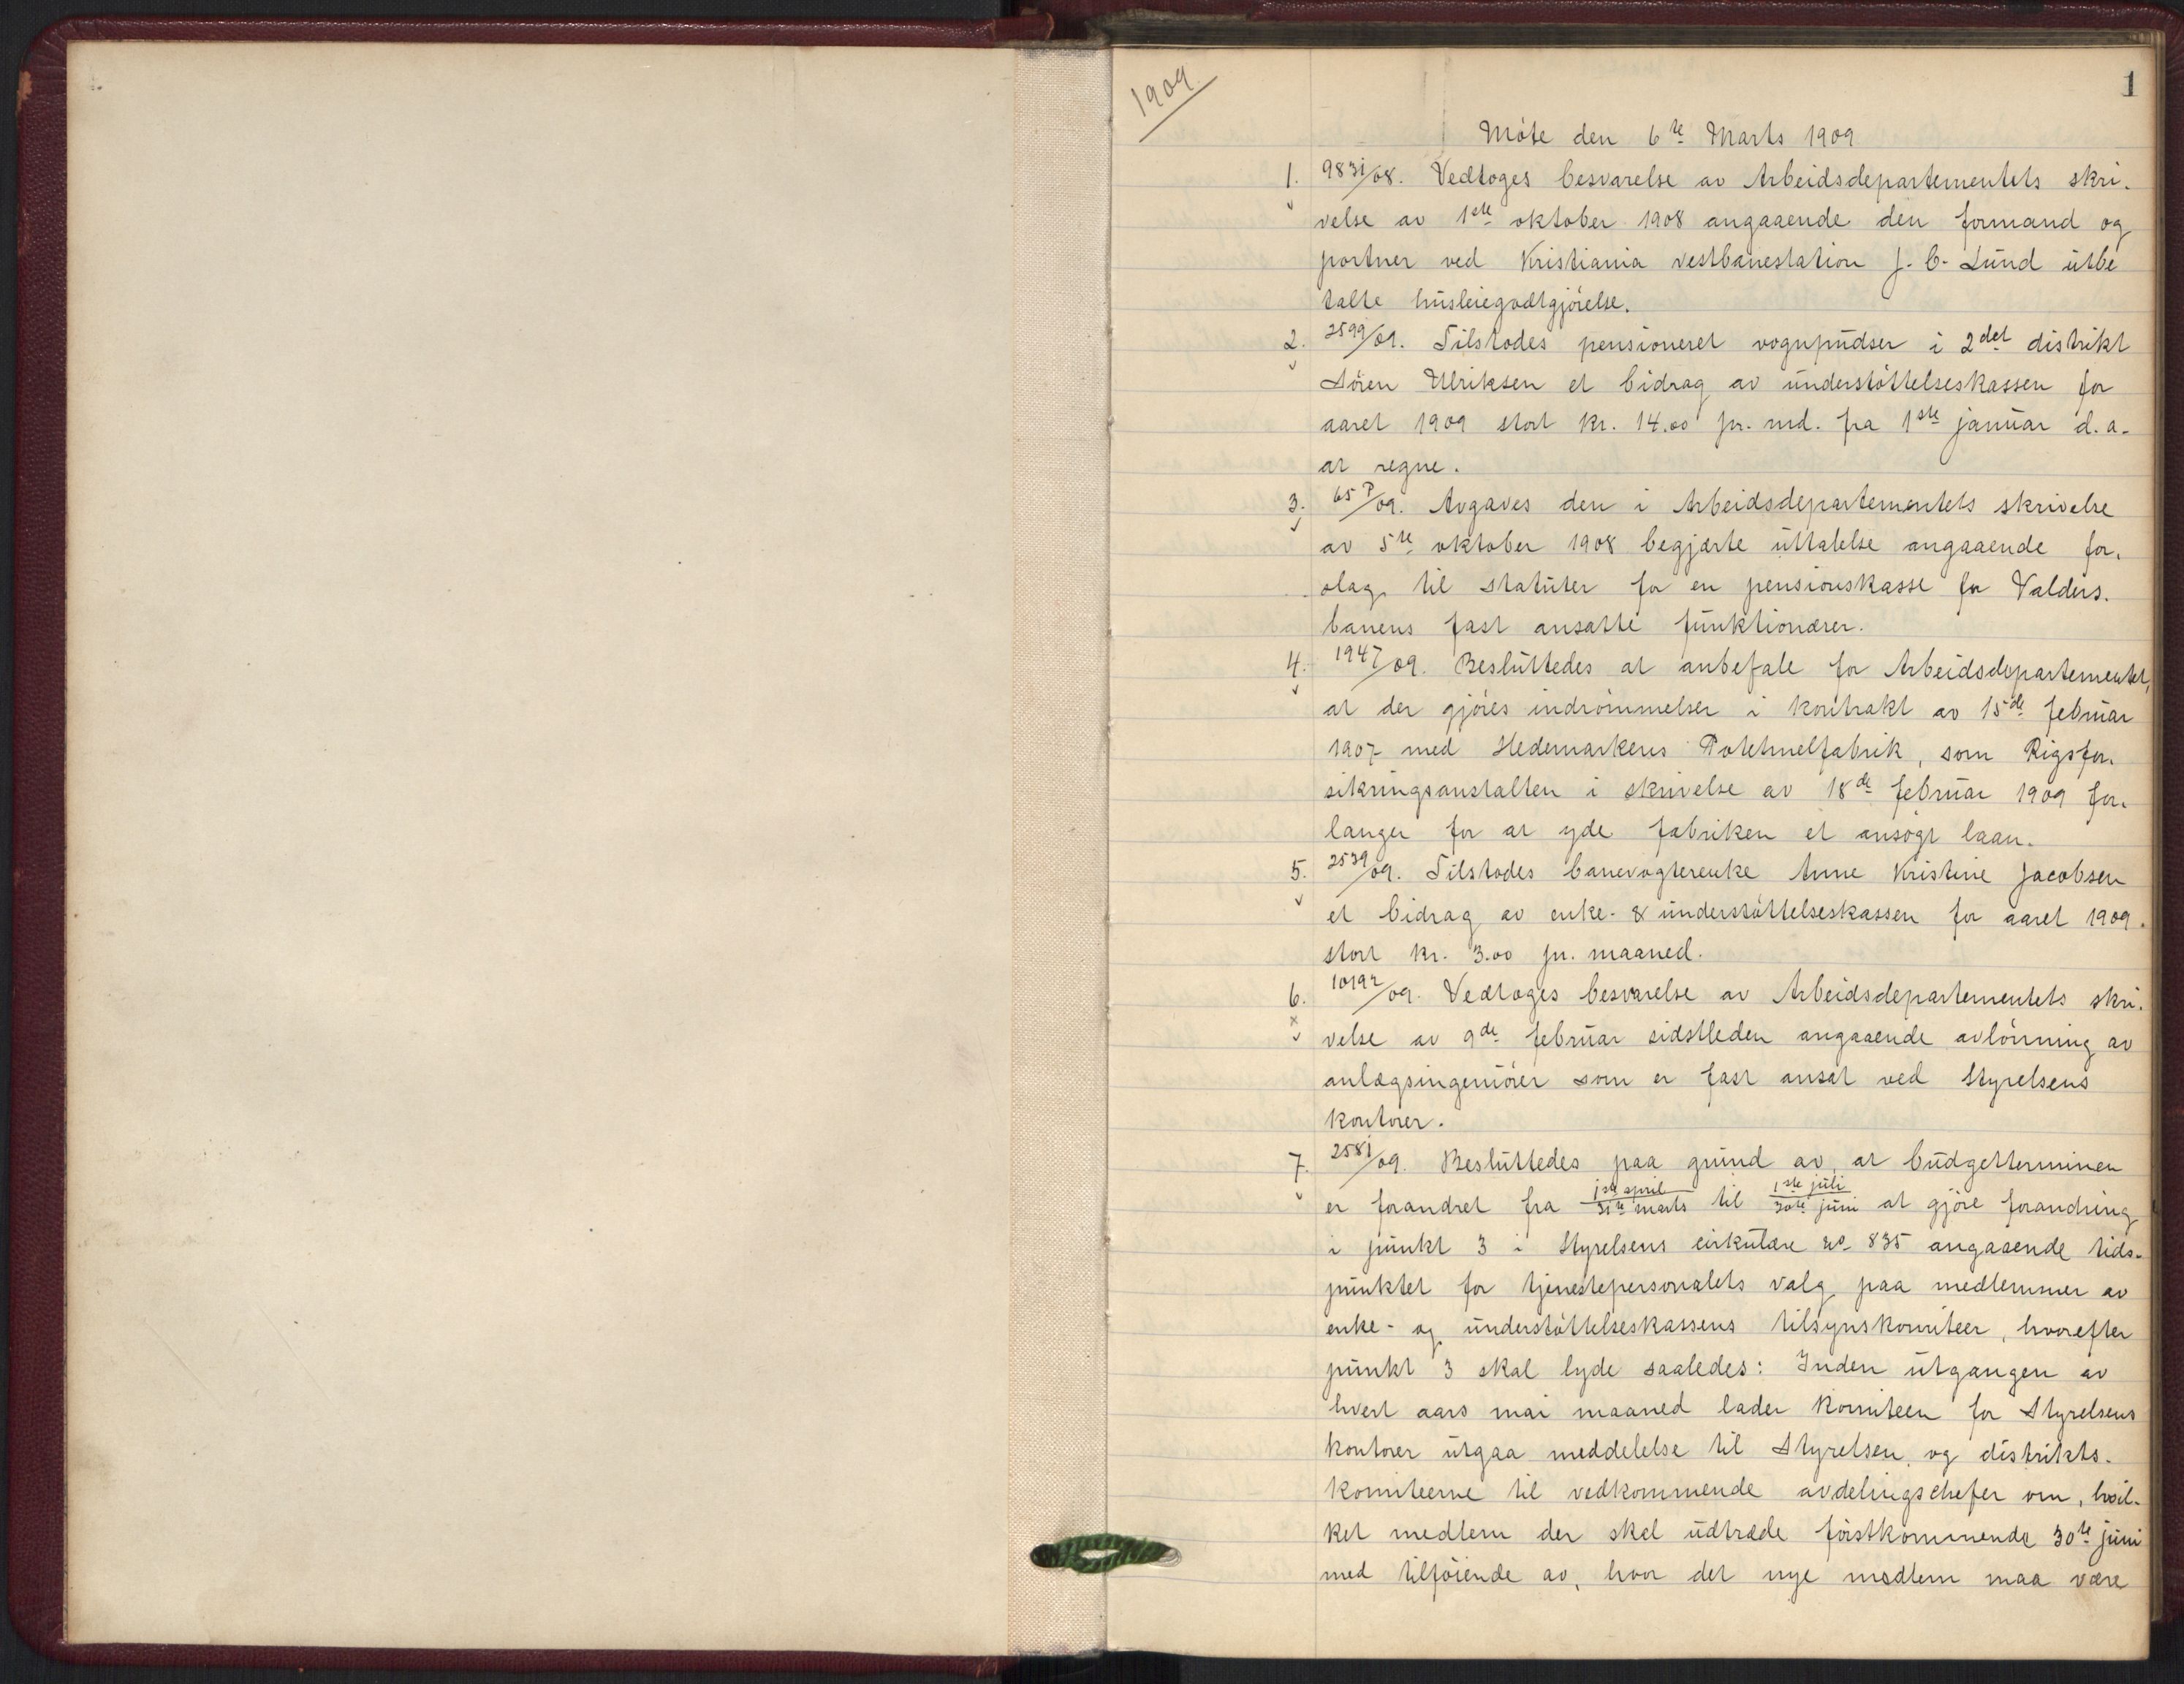 1909
1
Möte den 6te Marts 1909
1. 9831/08. Vedtoges besvarelse av Arbeidsdepartementets skri-
velse av 1ste oktober 1908 angaaende den formand og
portner ved Kristiania vestbanestation J. C. Lund utbe
talte husleiegodtgjörelse.
2. 2599/09. Tilstodes pensioneret vognpudser i 2det distrikt
Sören Ulriksen et bidrag av understöttelseskassen for
aaret 1909 stort kr. 14.00 pr. md. fra 1ste januar d.a.
at regne.
3. 65P/09. Avgaves den i Arbeidsdepartementets skrivelse
av 5te oktober 1908 begjærte uttalelse angaaende for-
slag til statuter for en pensionskasse for Valders-
banens fast ansatte funktionærer.
4. 1947/09. Besluttedes at anbefale for Arbeidsdepartementet,
at der gjöres indrömmelser i kontrakt av 15de februar
1907 med Hedemarkens Potetmelfabrik, som Rigsfor-
sikringsanstalten i skrivelse av 18de februar 1909 for-
langer for at yde fabriken et ansögt laan.
5. 2539/09. Tilstodes banevogterenke Anne Kristine Jacobsen
et bidrag av enke- & understöttelseskassen for aaret 1909
stort kr. 3.00 pr. maaned.
6. 10192/09. Vedtoges besvarelse av Arbeidsdepartementets skri-
velse av 9de februar sidstleden angaaende avlönning av
anlægsingeniörer som er fast ansat ved Styrelsens
kontorer.
7. 2581/09. Besluttedes paa grund av, at budgetterminen
er forandret fra 1ste april/31te marts til 1ste juli/30te juni at gjöre forandring
i punkt 3 i Styrelsens cirkulære No 835 angaaende tids-
punktet for tjenestepersonalets valg paa medlemmer av
enke- og understöttelseskassens tilsynskomiteer, hvorefter
punkt 3 skal lyde saaledes: Inden utgangen av
hvert aars mai maaned lader komiteen for Styrelsens
kontorer utgaa meddelelse til Styrelsen, og distrikts-
komiteerne til vedkommende avdelingschefer om, hvil-
ket medlem der skal udtræde förstkommende 30te juni
med tilföiende av, hvor det nye medlem maa være